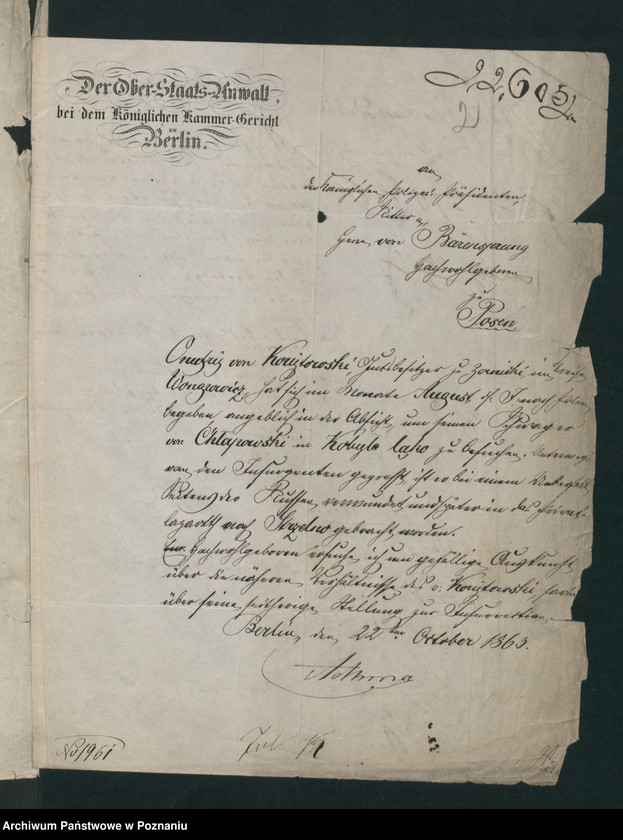 Der Ober-Staats-Anwalt
bei dem Königlichen Kammer-Gericht
zu
Berlin.
22,605
2)
An
den Königlichen Polizei-Präsidenten,
Ritter
Herrn von Bärensprung
Hochwohlgeboren
zu
Posen
von Korytowski, Gutsbesitzer zu im Kreise
Wongrowicz, hat sich im Monate August d. J. nach Polen
begeben angeblich in der Absicht, um seinen Schwager
von Chlapowski in zu besuchen. Unterwegs
von den Insurgenten gepreßt, ist er bei einem Ueberfall
Seitens der Russen verwundet und später in das Privat-
lazareth nach gebracht worden.
Hochwohlgeboren ersuche ich um gefällige Auskunft
über die näheren Verhältnisse des v. Korytowski sowie
über seine seitherige Stellung zur Insurrection.
Berlin, den 22ten October 1863.
No 1961